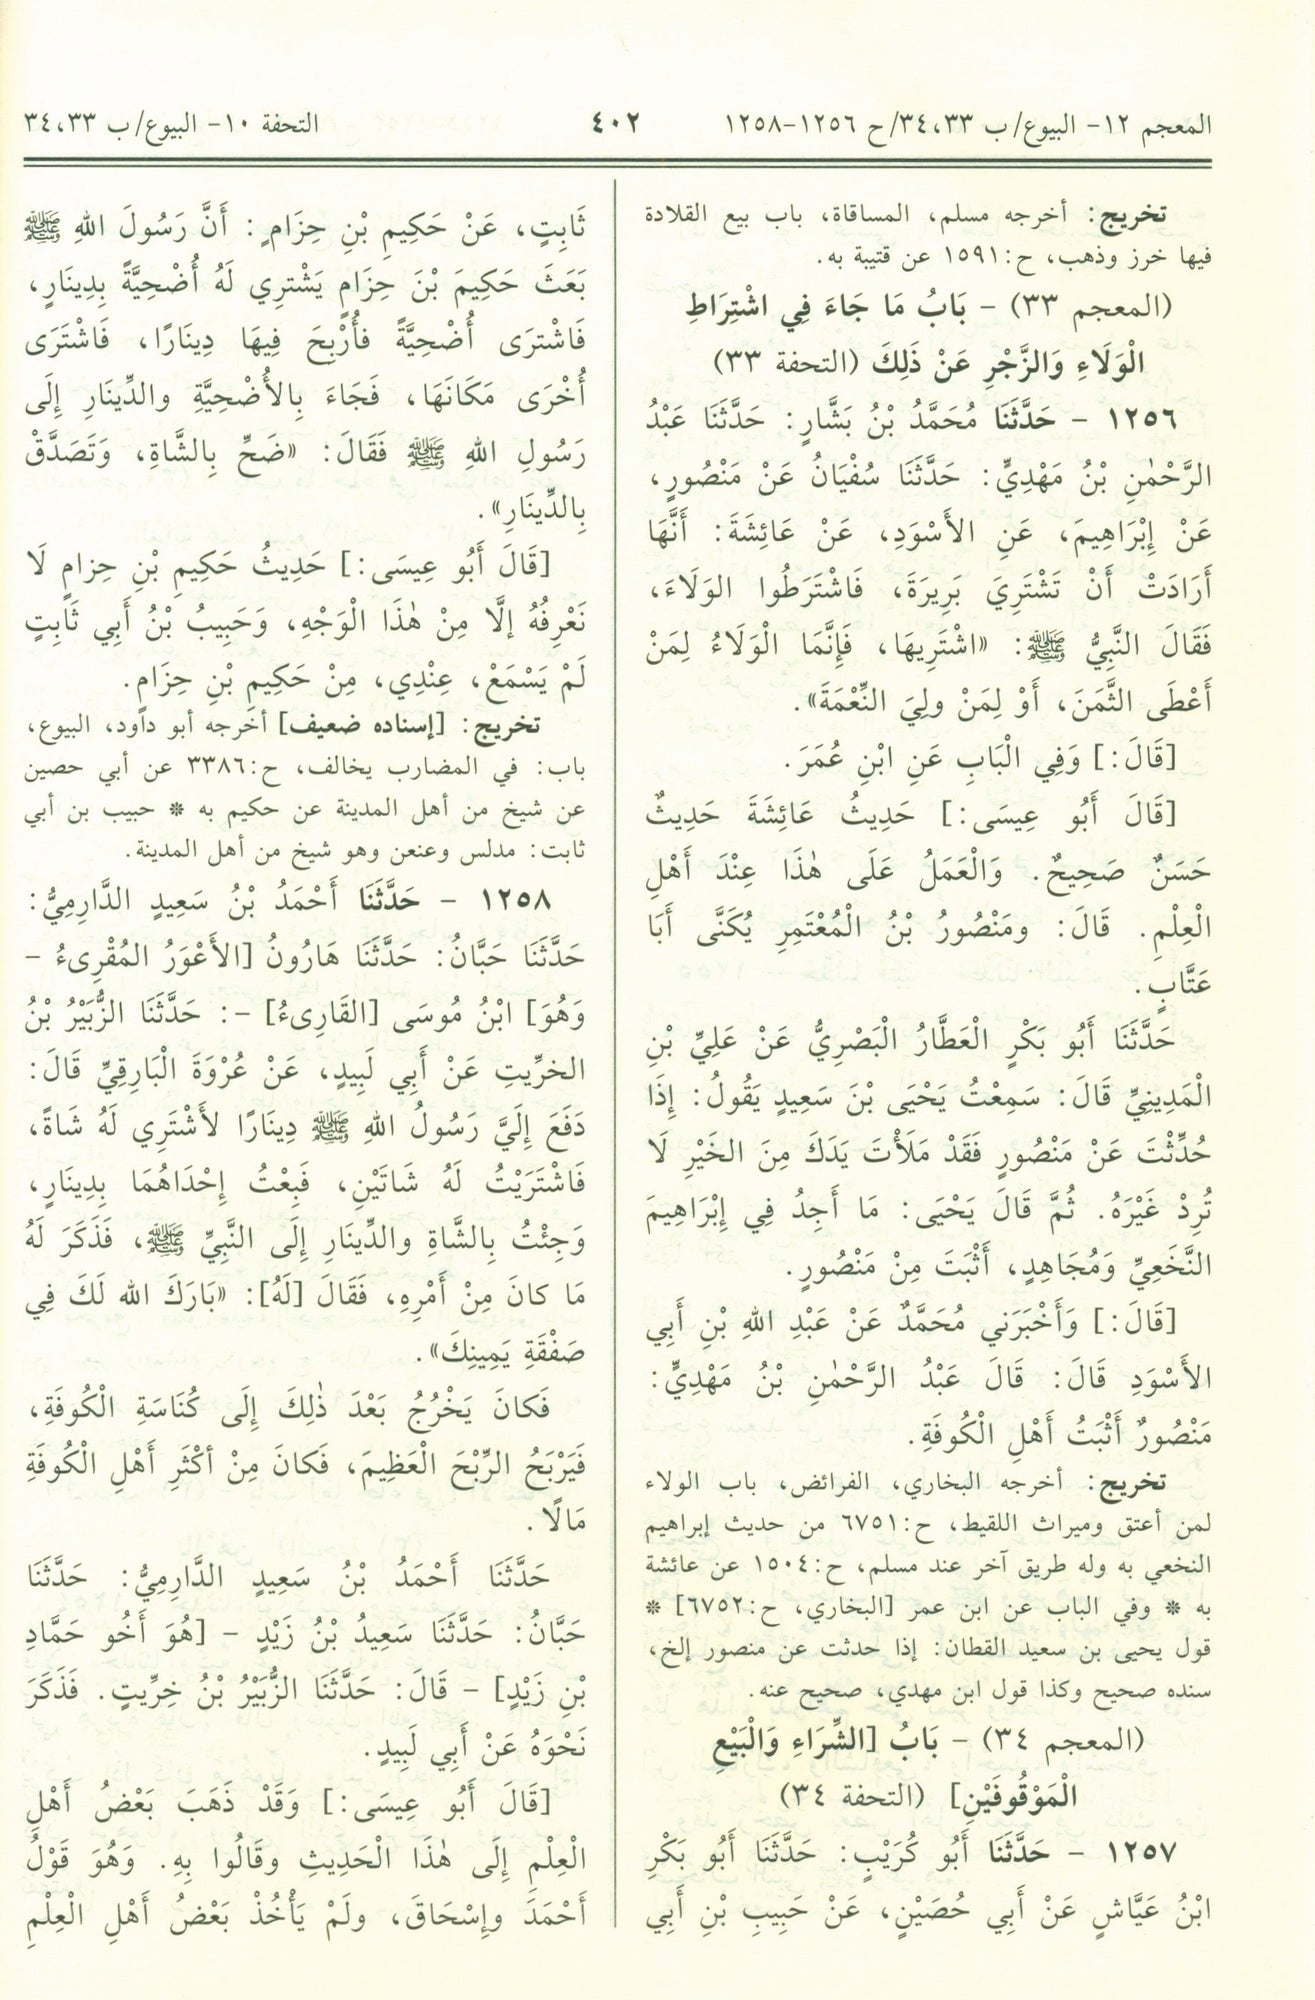 المعجم ١٢- البيوع/ ب ٣٤،٣٣/ ح ١٢٥٦-١٢٥٨
٤٠٢
التحفة ١٠- البيوع/ ب ٣٤،٣٣
تخريج: أخرجه مسلم، المساقاة، باب بيع القلادة
فيها خرز وذهب، ح:١٥٩١ عن قتيبة به.
(المعجم ٣٣) - بَابُ مَا جَاءَ فِي اشْتِرَاطِ
الْوَلَاءِ وَالزَّجْرِ عَنْ ذَلِكَ (التحفة ٣٣)
١٢٥٦ - حَدَّثَنَا مُحَمَّدُ بْنُ بَشَّارٍ: حَدَّثَنَا عَبْدُ
الرَّحْمٰنِ بْنُ مَهْدِيٍّ: حَدَّثَنَا سُفْيَانُ عَنْ مَنْصُورٍ،
عَنْ إِبْرَاهِيمَ، عَنِ الأَسْوَدِ، عَنْ عَائِشَةَ: أَنَّهَا
أَرَادَتْ أَنْ تَشْتَرِيَ بَرِيرَةَ، فَاشْتَرَطُوا الوَلَاءَ،
فَقَالَ النَّبِيُّ ﷺ: «اشْتَرِيهَا، فَإِنَّمَا الْوَلَاءُ لِمَنْ
أَعْطَى الثَّمَنَ، أَوْ لِمَنْ ولِيَ النِّعْمَةَ».
[قَالَ:] وَفِي الْبَابِ عَنِ ابْنِ عُمَرَ.
[قَالَ أَبُو عِيسَى:] حَدِيثُ عَائِشَةَ حَدِيثٌ
حَسَنٌ صَحِيحٌ. وَالْعَمَلُ عَلَى هٰذَا عِنْدَ أَهْلِ
الْعِلْمِ. قَالَ: ومَنْصُورُ بْنُ الْمُعْتَمِرِ يُكَنَّى أَبَا
عَتَّابٍ.
حَدَّثَنَا أَبُو بَكْرٍ الْعَطَّارُ الْبَصْرِيُّ عَنْ عَلِيِّ بْنِ
الْمَدِينِيِّ قَالَ: سَمِعْتُ يَحْيَى بْنَ سَعِيدٍ يَقُولُ: إِذَا
حُدِّثْتَ عَنْ مَنْصُورٍ فَقَدْ مَلَأْتَ يَدَكَ مِنَ الخَيْرِ لَا
تُرِدْ غَيْرَهُ. ثُمَّ قَالَ يَحْيَى: مَا أَجِدُ فِي إِبْرَاهِيمَ
النَّخَعِيِّ وَمُجَاهِدٍ، أَثْبَتَ مِنْ مَنْصُورٍ.
[قَالَ:] وَأَخْبَرَني مُحَمَّدٌ عَنْ عَبْدِ اللهِ بْنِ أَبِي
الأَسْوَدِ قَالَ: قَالَ عَبْدُ الرَّحْمٰنِ بْنُ مَهْدِيٍّ:
مَنْصُورٌ أَثْبَتُ أَهْلِ الْكُوفَةِ.
تخريج: أخرجه البخاري، الفرائض، باب الولاء
لمن أعتق وميراث اللقيط، ح:٦٧٥١ من حديث إبراهيم
النخعي به وله طريق آخر عند مسلم، ح:١٥٠٤ عن عائشة
به * وفي الباب عن ابن عمر [البخاري، ح:٦٧٥٢] *
قول يحيى بن سعيد القطان: إذا حدثت عن منصور إلخ،
سنده صحيح وكذا قول ابن مهدي، صحيح عنه.
(المعجم ٣٤) - بَابُ [الشِّرَاءِ وَالْبَيْعِ
الْمَوْقُوفَيْنِ] (التحفة ٣٤)
١٢٥٧ - حَدَّثَنَا أَبُو كُرَيْبٍ: حَدَّثَنَا أَبُو بَكْرِ
ابْنُ عَيَّاشٍ عَنْ أَبِي حُصَيْنٍ، عَنْ حَبِيبِ بْنِ أَبِي
ثَابِتٍ، عَنْ حَكِيمِ بْنِ حِزَامٍ: أَنَّ رَسُولَ اللهِ ﷺ
بَعَثَ حَكِيمَ بْنَ حِزَامٍ يَشْتَرِي لَهُ أُضْحِيَّةً بِدِينَارٍ،
فَاشْتَرَى أُضْحِيَّةً فأُرْبِحَ فِيهَا دِينَارًا، فَاشْتَرَى
أُخْرَى مَكَانَهَا، فَجَاءَ بِالأُضْحِيَّةِ والدِّينَارِ إِلَى
رَسُولِ اللهِ ﷺ فَقَالَ: «ضَحِّ بِالشَّاةِ، وَتَصَدَّقْ
بِالدِّينَارِ».
[قَالَ أَبُو عِيسَى:] حَدِيثُ حَكِيمِ بْنِ حِزامٍ لَا
نَعْرِفُهُ إلَّا مِنْ هٰذَا الْوَجْهِ، وَحَبِيبُ بْنُ أَبِي ثَابِتٍ
لَمْ يَسْمَعْ، عِنْدِي، مِنْ حَكِيمِ بْنِ حِزَامٍ.
تخريج: [إسناده ضعيف] أخرجه أبو داود، البيوع،
باب: في المضارب يخالف، ح:٣٣٨٦ عن أبي حصين
عن شيخ من أهل المدينة عن حكيم به * حبيب بن أبي
ثابت: مدلس وعنعن وهو شيخ من أهل المدينة.
١٢٥٨ - حَدَّثَنَا أَحْمَدُ بْنُ سَعِيدٍ الدَّارِمِيُّ:
حَدَّثَنَا حَبَّانُ: حَدَّثَنَا هَارُونُ [الأَعْوَرُ المُقْرِىءُ -
وَهُوَ] ابْنُ مُوسَى [القَارِىءُ] -: حَدَّثَنَا الزُّبَيْرُ بْنُ
الخرِّيتِ عَنْ أَبِي لَبِيدٍ، عَنْ عُرْوَةَ الْبَارِقِيِّ قَالَ:
دَفَعَ إِلَيَّ رَسُولُ اللهِ ﷺ دِينَارًا لأَشْتَرِي لَهُ شَاةً،
فَاشْتَرَيْتُ لَهُ شَاتَيْنِ، فَبِعْتُ إِحْدَاهُمَا بِدِينَارٍ،
وَجِئْتُ بِالشَّاةِ والدِّينَارِ إِلَى النَّبِيِّ ﷺ، فَذَكَرَ لَهُ
مَا كانَ مِنْ أَمْرِهِ، فَقَالَ [لَهُ]: «بَارَكَ الله لَكَ فِي
صَفْقَةِ يَمِينِكَ».
فَكانَ يَخْرُجُ بَعْدَ ذٰلِكَ إِلَى كُنَاسَةِ الْكُوفَةِ،
فَيَرْبَحُ الرِّبْحَ الْعَظِيمَ، فَكانَ مِنْ أكْثَرِ أَهْلِ الْكُوفَةِ
مَالًا.
حَدَّثَنَا أَحْمَدُ بْنُ سَعِيدٍ الدَّارِمِيُّ: حَدَّثَنَا
حَبَّانُ: حَدَّثَنَا سَعِيدُ بْنُ زَيْدٍ - [هُوَ أَخُو حَمَّادِ
بْنِ زَيْدٍ] - قَالَ: حَدَّثَنَا الزُّبَيْرُ بْنُ خِرِّيتٍ. فَذَكَرَ
نَحْوَهُ عَنْ أَبِي لَبِيدٍ.
[قَالَ أَبُو عِيسَى:] وَقَدْ ذَهَبَ بَعْضُ أَهْلِ
الْعِلْمِ إِلَى هٰذَا الْحَدِيثِ وقَالُوا بِهِ. وَهُوَ قَوْلُ
أَحْمَدَ وإِسْحَاقَ، ولَمْ يَأْخُذْ بَعْضُ أَهْلِ الْعِلْمِ